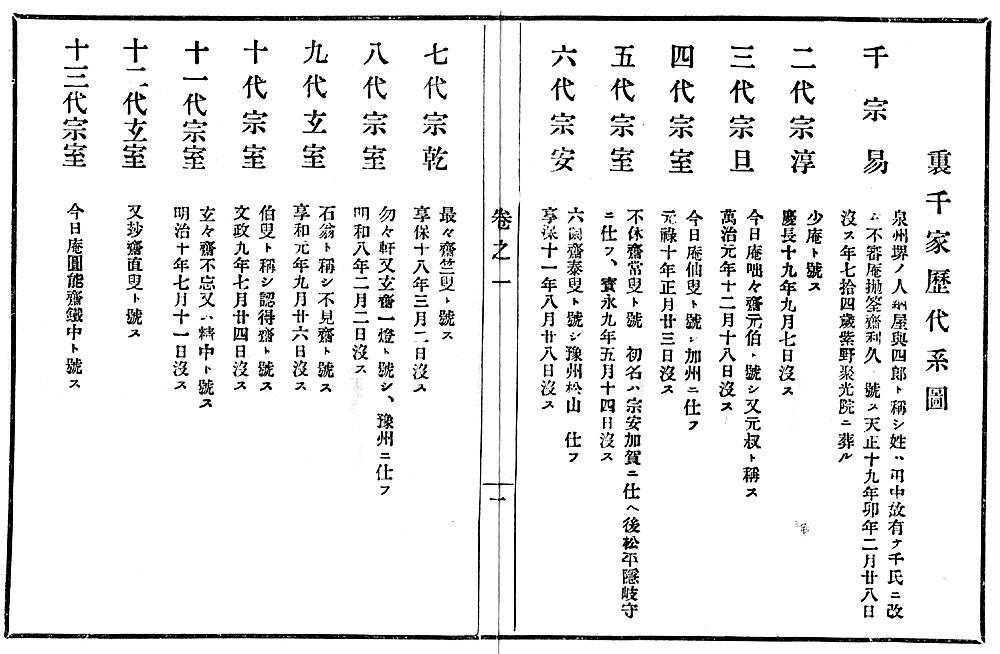 裏千家歷代系圖
千宗易
泉州堺ノ人納屋與四郎ト稱シ姓ハ田中故有テ千氏ニ改
ム不審庵抛筌齋利久 號ス天正十九年卯年二月廿八日
沒ス年七拾四歲紫野聚光院ニ葬ル
二代宗淳
少庵ト號ス
慶長十九年九月七日沒ス
三代宗旦
今日庵咄々齋元伯ト號シ又元叔ト稱ス
萬治元年十二月十八日沒ス
四代宗室
今日庵仙叟ト號シ加州ニ仕フ
元祿十年正月廿三日沒ス
五代宗室
不休齋常叟ト號 初名ハ宗安加賀ニ仕ヘ後松平隱岐守
ニ仕フ、寳永九年五月十四日沒ス
六代宗安
六閑齋泰叟ト號シ豫州松山 仕フ
享保十一年八月廿八日沒ス
卷之一
一
七代宗乾
最々齋竺叟ト號ス
享保十八年三月二日沒ス
八代宗室
勿々軒又玄齋一燈ト號シ、豫州ニ仕フ
明和八年二月二日沒ス
九代玄室
石翁ト稱シ不見齋ト號ス
享和元年九月廿六日沒ス
十代宗室
伯叟ト稱シ認得齋ト號ス
文政九年七月廿四日沒ス
十一代宗室
玄々齋不忘又ハ精中ト號ス
明治十年七月十一日沒ス
十二代玄室
又玅齋直叟ト號ス
十三代宗室
今日庵圓能齋鐵中ト號ス